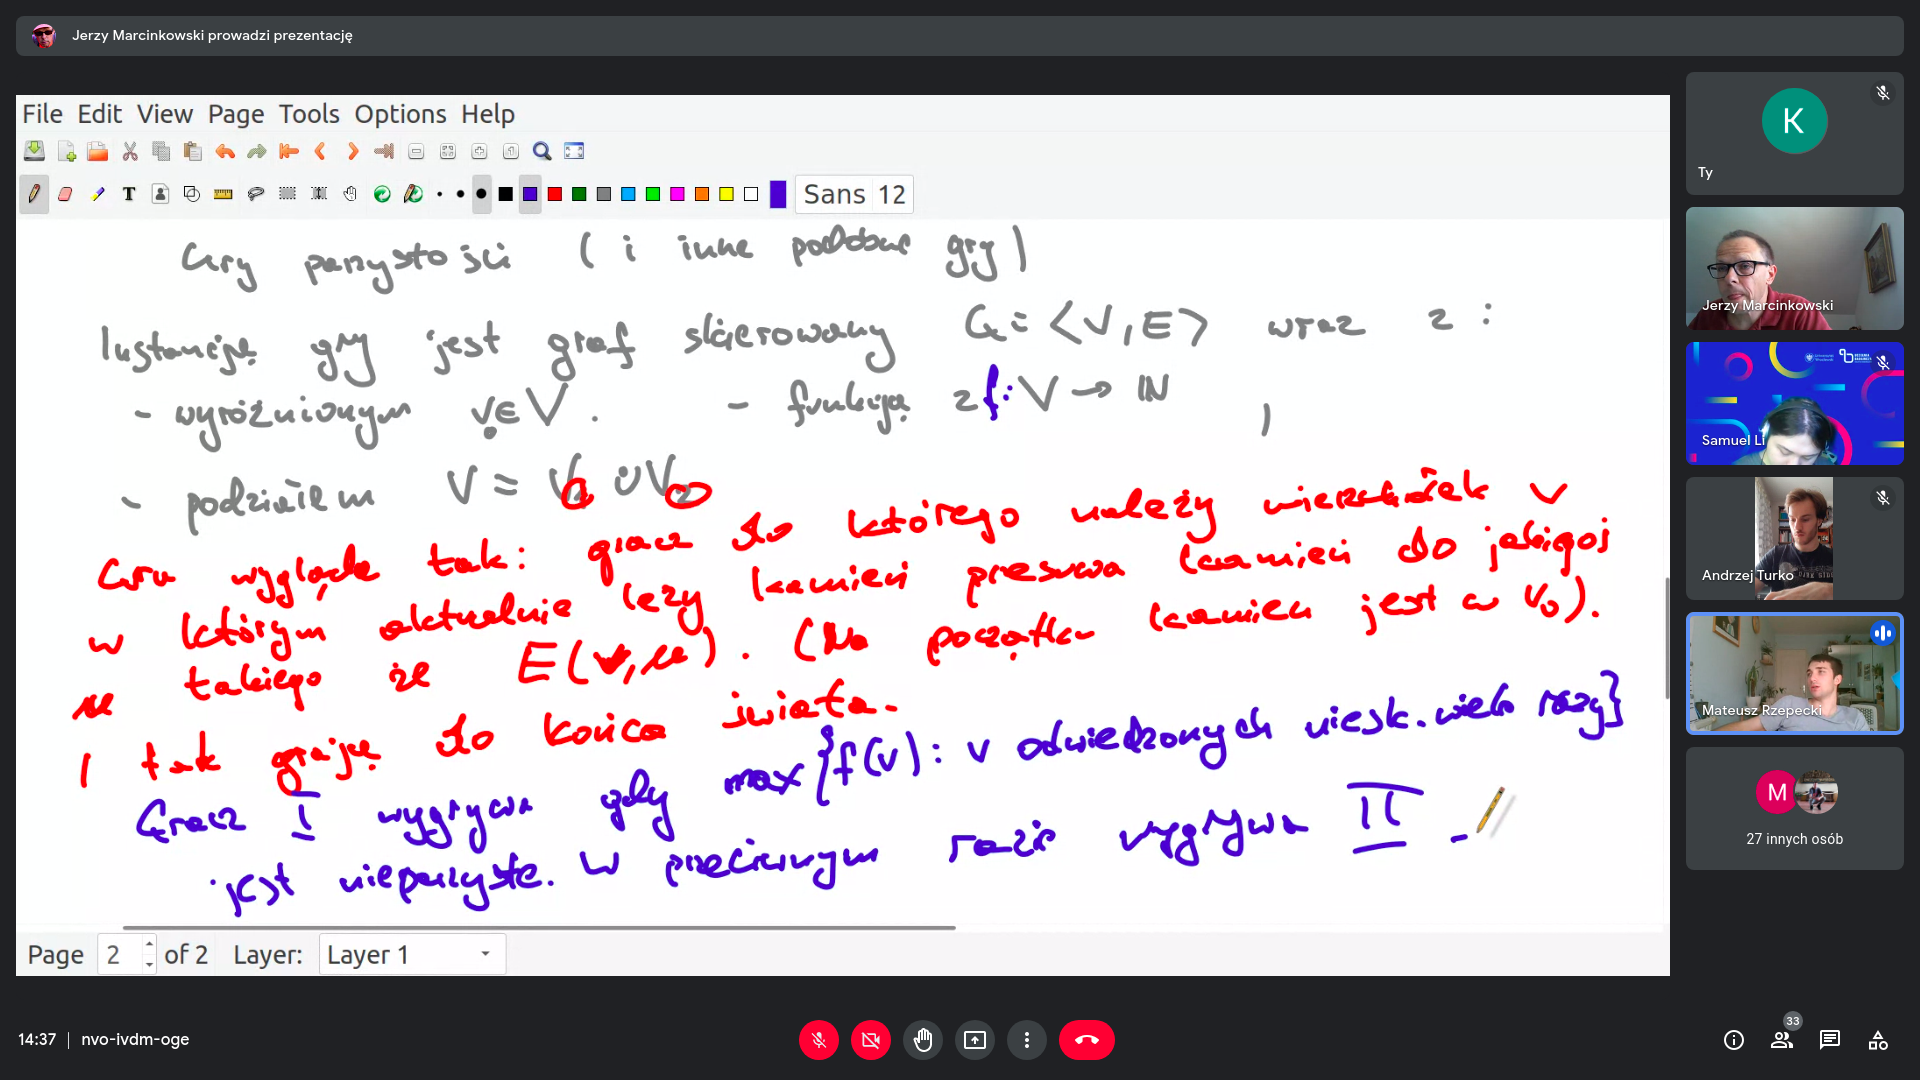 Jerzy Marcinkowski prowadzi prezentację
File Edit View Page Tools Options Help
T Sans 12
Gry parzystości (i inne podobne gry)
Instancją gry jest graf skierowany G = <V, E> wraz z :
- wyróżnionym v₀ ∈ V. - funkcją z f: V → ℕ
- podziałem V = V ∪ V
Gra wygląda tak: gracz do którego należy wierzchołek v
w którym aktualnie leży kamień przesuwa kamień do jakiegoś
u takiego że E(v,u). (Na początku kamień jest w v₀).
I tak grają do końca świata.
Gracz I wygrywa gdy max {f(v): v odwiedzonych niesk. wiele razy}
jest nieparzyste. W przeciwnym razie wygrywa II -
Page 2 of 2 Layer: Layer 1
K
Ty
Jerzy Marcinkowski
Samuel Li
Andrzej Turko
Mateusz Rzepecki
M
27 innych osób
14:37 | nvo-ivdm-oge
33